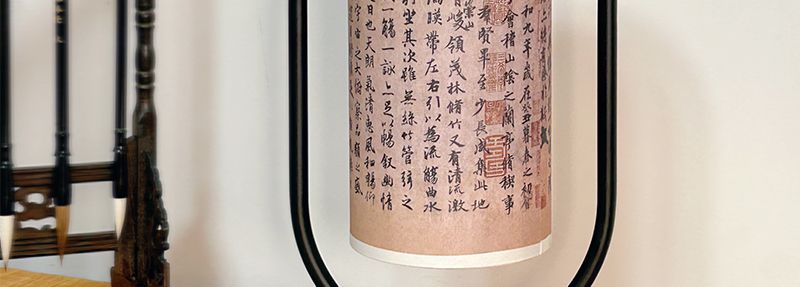 和九年歲在癸丑暮春之初會
會稽山陰之蘭亭脩禊事
群賢畢至少長咸集此地
有崇山峻領茂林脩竹又有清流激
湍暎帶左右引以為流觴曲水
列坐其次雖無絲竹管弦之
一觴一詠亦足以暢敘幽情
日也天朗氣清惠風和暢仰
宇宙之大俯察品類之盛